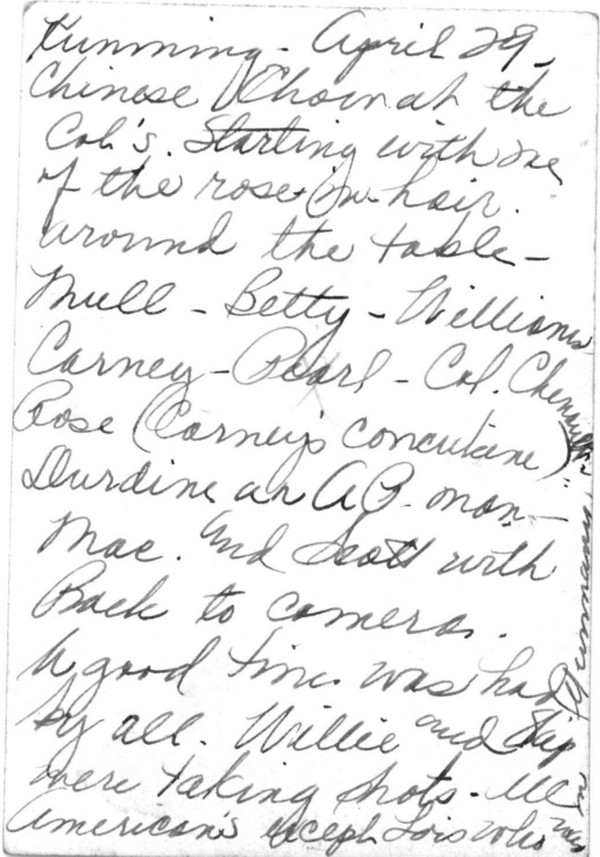 Kunming - April 29 -
Chinese Chow at the
Col's. Starting with one
of the rose-in-hair.
around the table -
Mull - Betty - Williams
Carney - Pearl - Col. Chennault
Rose (Carney's concubine)
Durdine an AP man -
Mac. and Scott with
Back to camera.
A good time was had
by all. Willie and Skip
were taking shots. All
American's except Lois who was